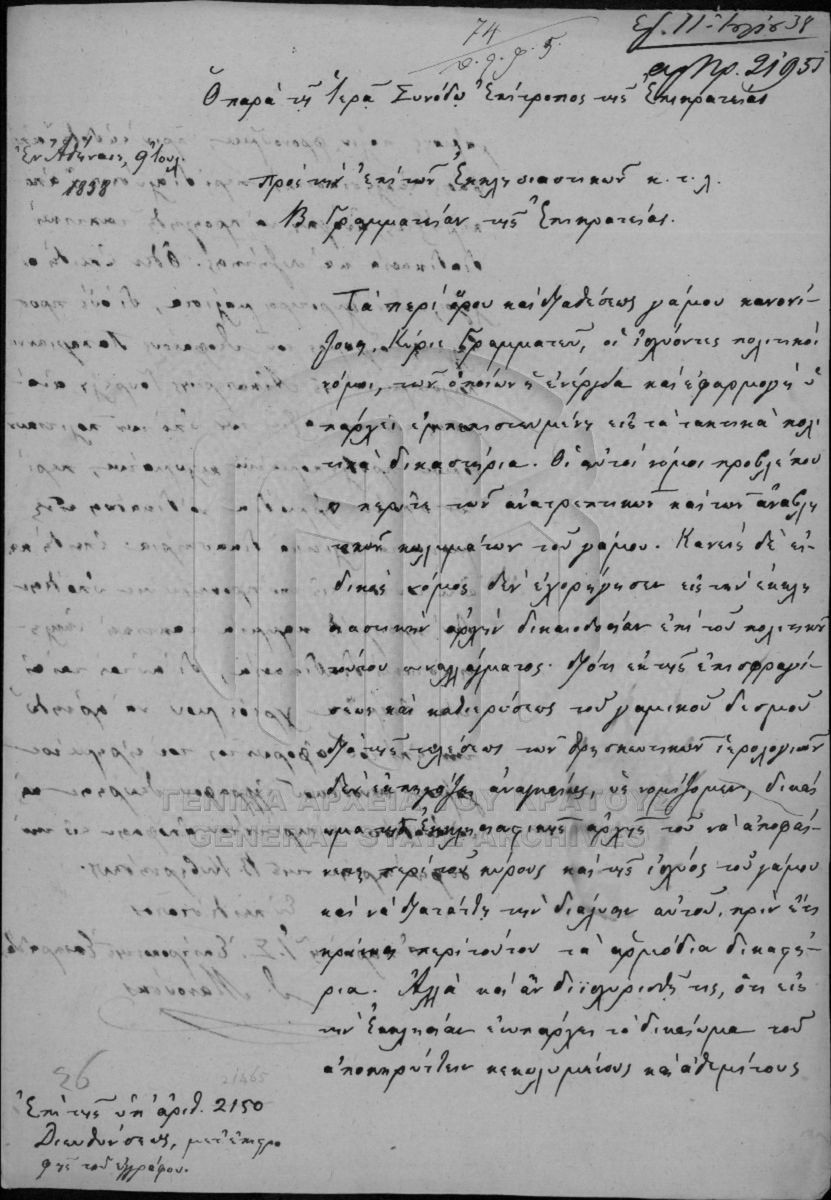 74
σ. φ. 5.
Ἐλ. 11 Ἰουλίου 38
ἀρ. Πρ. 21951
Ὁ παρὰ τῇ Ἱερᾷ Συνόδῳ Ἐπίτροπος τῆς Ἐπικρατείας
Ἐν Ἀθήναις, 9 Ἰουλ.
1838
Πρὸς τὴν ἐπὶ τῶν Ἐκκλησιαστικῶν κ.τ.λ.
Β. Γραμματείαν τῆς Ἐπικρατείας.
Τὰ περὶ ὅρου καὶ διαθέσεως γάμου κανονί-
ζουσι, Κύριε Γραμματεῦ, οἱ ἰσχύοντες πολιτικοὶ
νόμοι, τῶν ὁποίων ἡ ἐνέργεια καὶ ἐφαρμογὴ ὑ
πάρχει ἐμπεπιστευμένη εἰς τὰ τακτικὰ πολι
τικὰ δικαστήρια. Οἱ αὐτοὶ νόμοι προβλέπου
σι περί τε τῶν ἀνατρεπτικῶν καὶ τῶν ἀναβλη
τικῶν κωλυμάτων τοῦ γάμου. Κανεὶς δὲ εἰ
δικὸς νόμος δὲν ἐχορήγησεν εἰς τὴν ἐκκλη
σιαστικὴν ἀρχὴν δικαιοδοσίαν ἐπὶ τοῦ πολιτικοῦ
τούτου συναλλάγματος· διότι ἐκ τῆς ἐπισφραγί-
σεως καὶ καθιερώσεως τοῦ γαμικοῦ δεσμοῦ
διὰ τῆς τελέσεως τῶν θρησκευτικῶν ἱερολογιῶν
δὲν ἐκπηγάζει ἀναγκαίως, ὡς νομίζομεν, δικαί
ωμα τῆς Ἐκκλησιαστικῆς ἀρχῆς τοῦ νὰ ἀποφαί-
νεται περὶ τοῦ κύρους καὶ τῆς ἰσχύος τοῦ γάμου
καὶ νὰ διατάττῃ τὴν διάλυσιν αὐτοῦ, πρὶν ἔτι
κρίνωσι περὶ τούτου τὰ ἁρμόδια δικαστή-
ρια. Ἀλλὰ καὶ ἂν διϊσχυρισθῇ τις, ὅτι εἰς
τὴν Ἐκκλησίαν ἐνυπάρχει τὸ δικαίωμα τοῦ
ἀποκηρύττειν κεκωλυμένους καὶ ἀθεμίτους
26
Ἐπὶ τῆς ὑπ' ἀριθ. 2150
Διευθύνσεως, μετ' ἐπιστρο
φῆς τοῦ ἐγγράφου.
ΓΕΝΙΚΑ ΑΡΧΕΙΑ ΤΟΥ ΚΡΑΤΟΥΣ
GENERAL STATE ARCHIVES